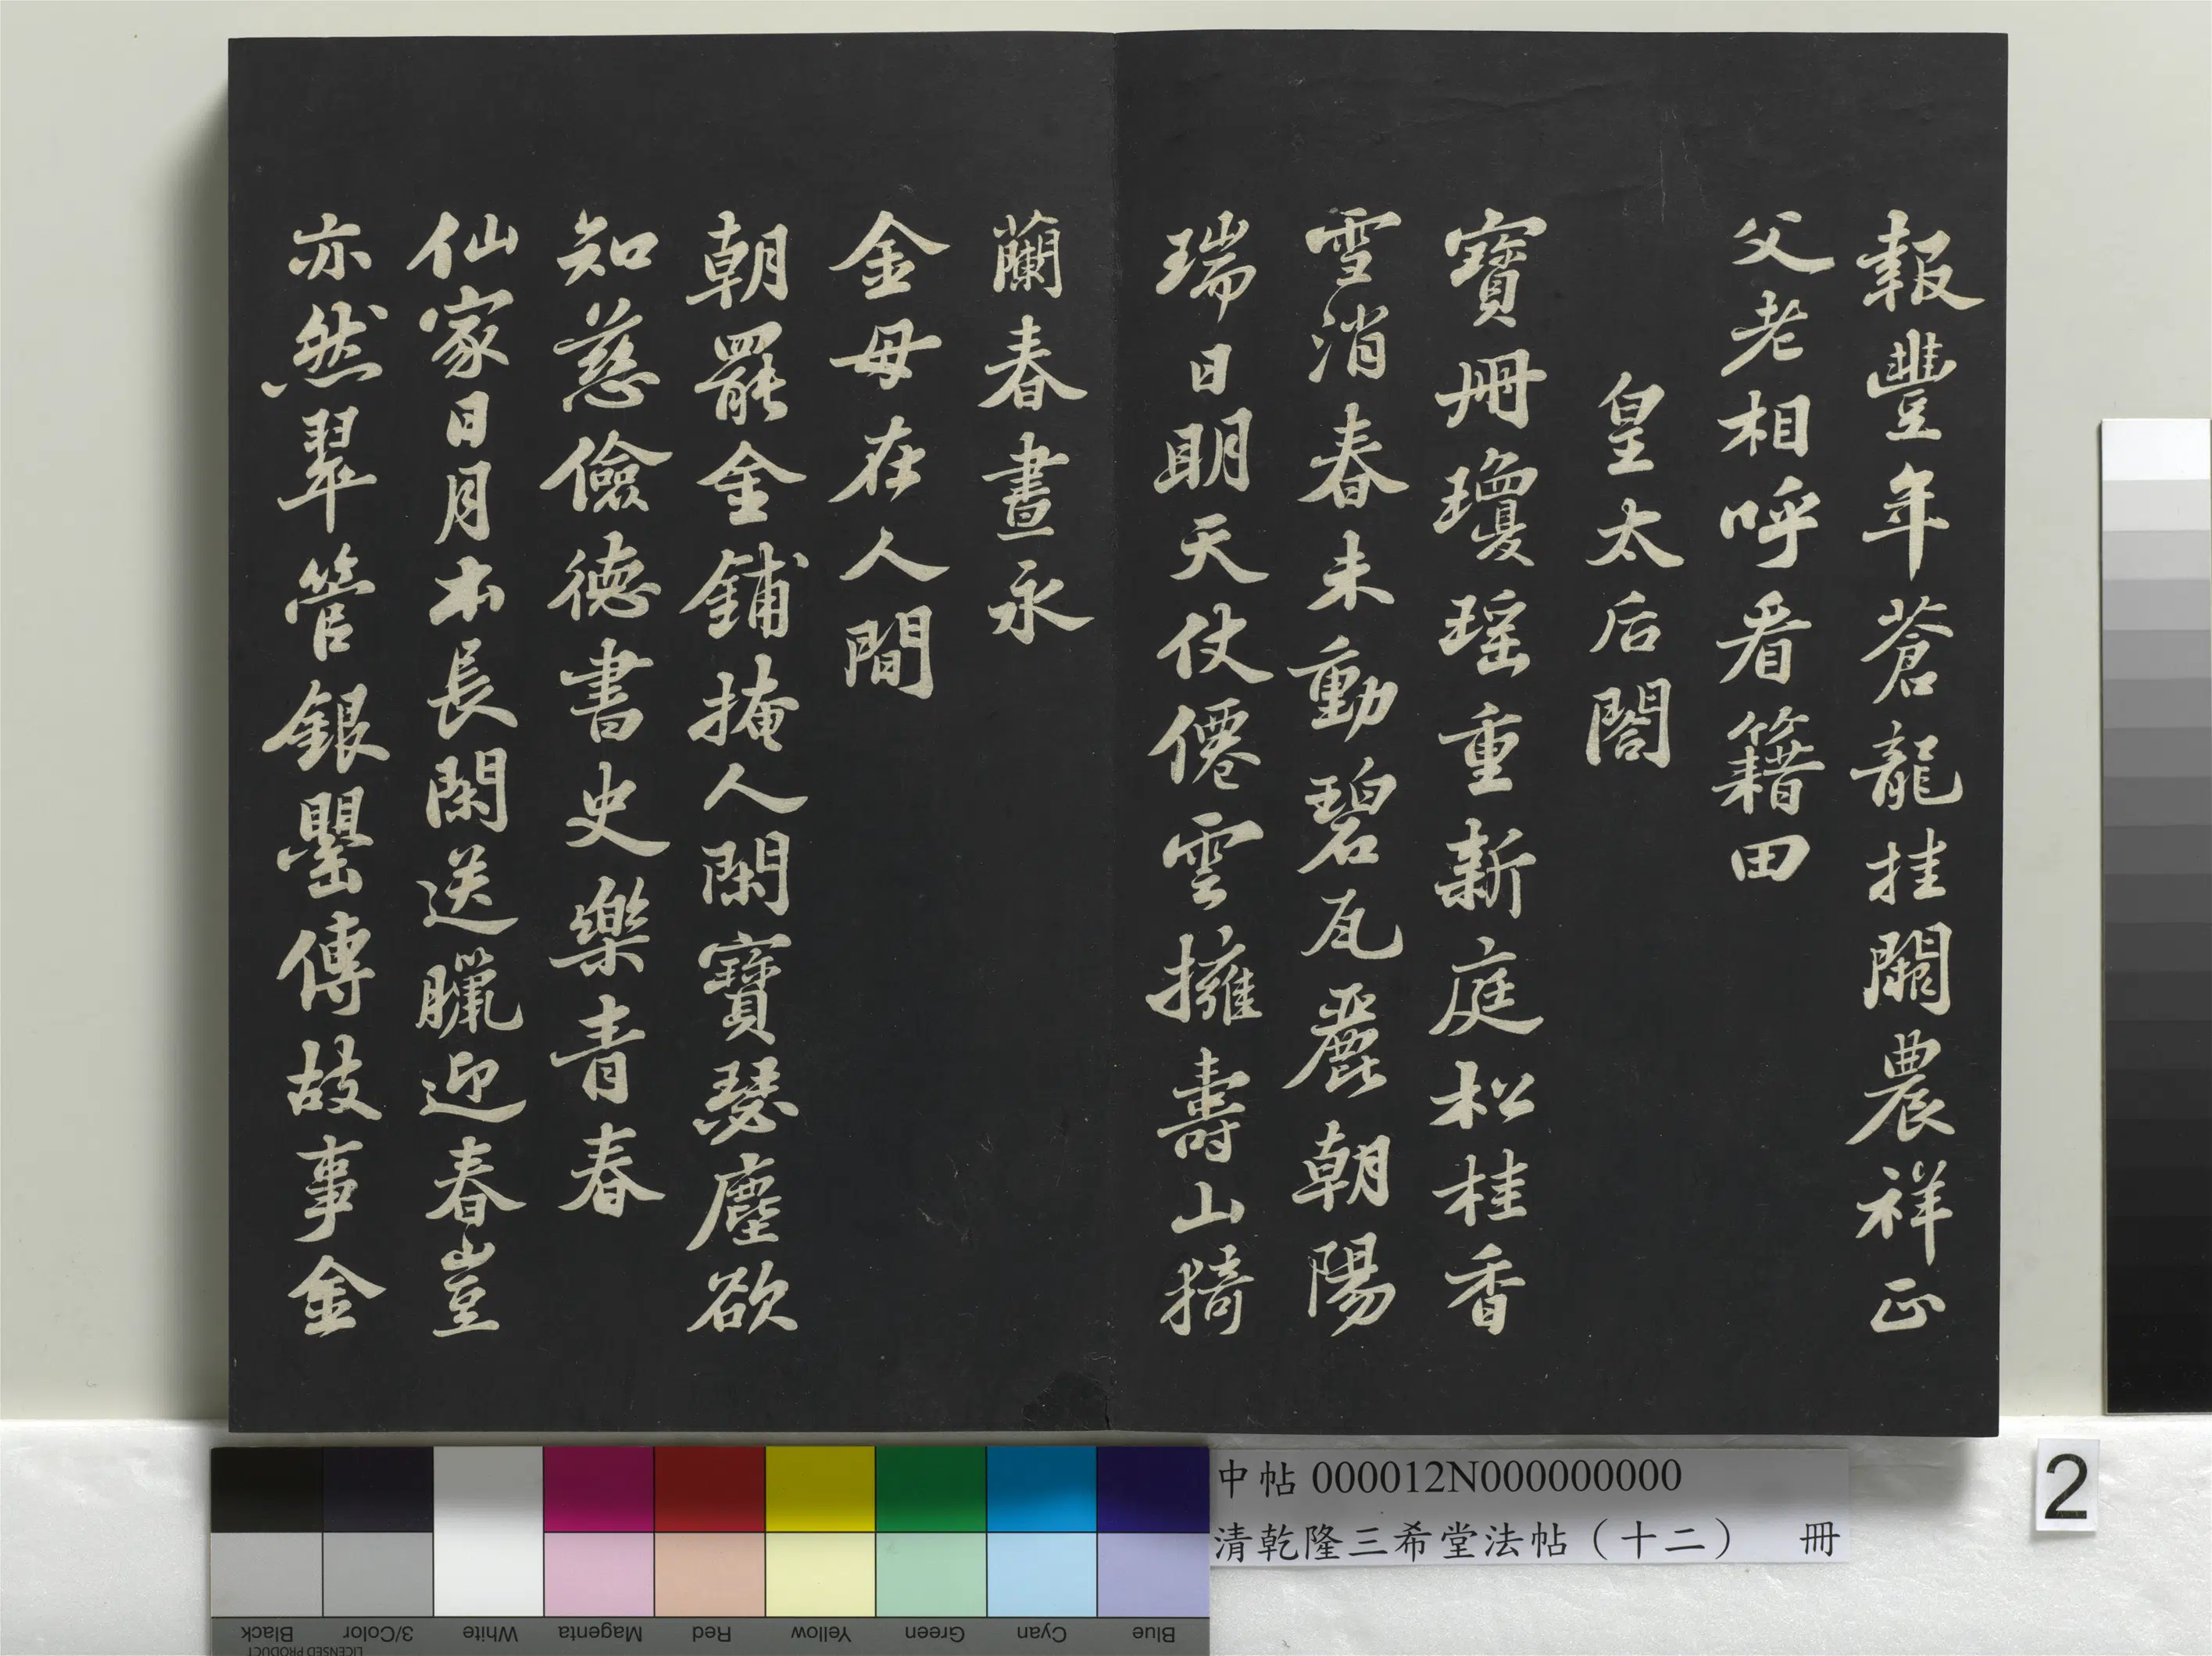 報豐年蒼龍挂闕農祥正
父老相呼看籍田
皇太后閤
寶冊瓊瑤重新庭松桂香
雪消春未動碧瓦麗朝陽
瑞日明天仗僊雲擁壽山猗
蘭春晝永
金母在人間
朝罷金鋪掩人閑寶瑟塵欲
知慈儉德書史樂青春
仙家日月本長閑送臘迎春豈
亦然翠管銀罌傳故事金
中帖 000012N000000000
清乾隆三希堂法帖（十二） 冊
2
Black
3/Color
White
Magenta
Red
Yellow
Green
Cyan
Blue
LICENSED PRODUCT